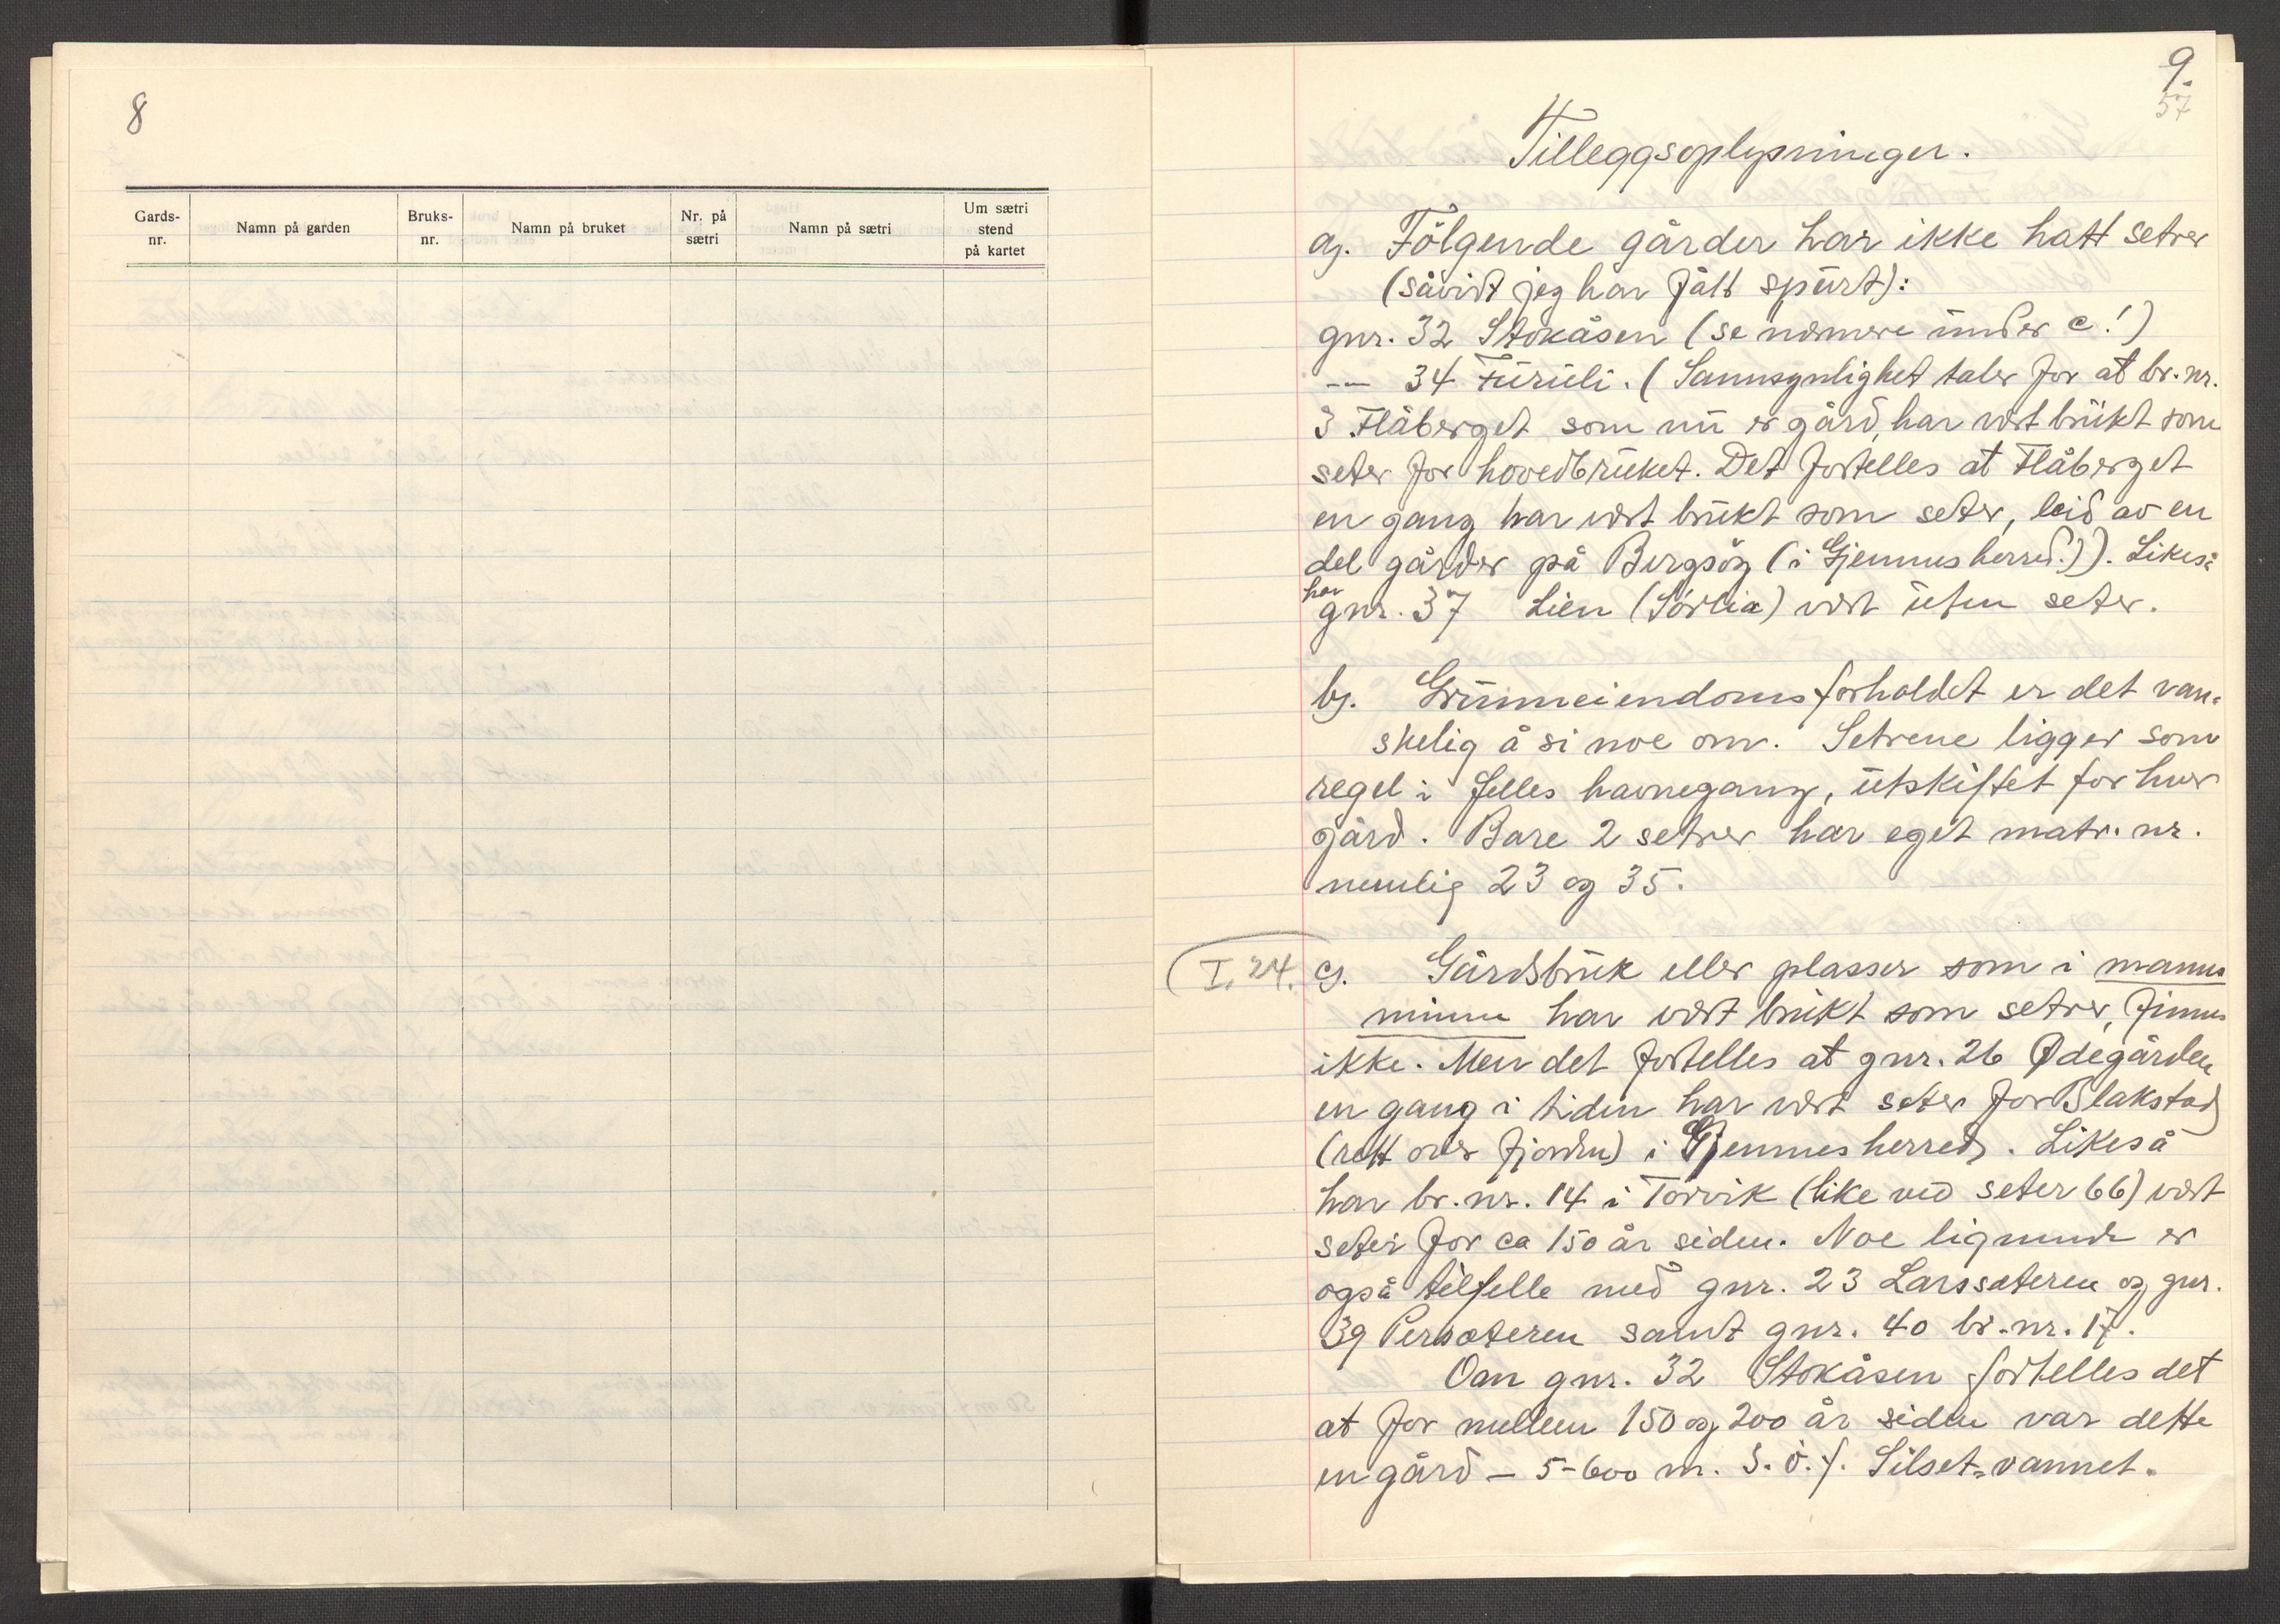 8
Gards-
nr.
Namn på garden
Bruks-
nr.
Namn på bruket
Nr. på
sætri
Namn på sætri
Um sætri
stend
på kartet
9.
57
Tilleggsoplysninger.
a). Følgende gårder har ikke hatt setrer
(såvidt jeg har fått spurt):
gnr. 32 Stokåsen (se nærmere under c!)
-"- 34 Furuli. (Sannsynlighet taler for at br.nr.
3 Flåberget som nu er gård, har vært brukt som
seter for hovedbruket. Det fortelles at Flåberget
en gang har vært brukt som seter, leid av en
del gårder på Bergsøy (i Gjemnes herred.)). Likeså
har
gnr. 37 Lien (Sørlia) vært uten seter.
b). Grunneiendomsforholdet er det van-
skelig å si noe om. Setrene ligger som
regel i felles havnegang, utskiftet for hver
gård. Bare 2 setrer har eget matr.nr.
nemlig 23 og 35.
I, 24. c). Gårdsbruk eller plasser som i manns
minne har vært brukt som setrer, finnes
ikke. Men det fortelles at gnr. 26 Ødegården
en gang i tiden har vært seter for Blakstad
(rett over fjorden) i Gjemnes herred. Likeså
har br.nr. 14 i Torvik (like ved seter 66) vært
seter for ca 150 år siden. Noe lignende er
også tilfelle med gnr. 23 Larssæteren og gnr.
39 Persæteren samt gnr. 40 br.nr. 17.
Om gnr. 32 Stokåsen fortelles det
at for mellem 150 og 200 år siden var dette
en gård - 5-600 m. s.ö.f. Silset-vannet.